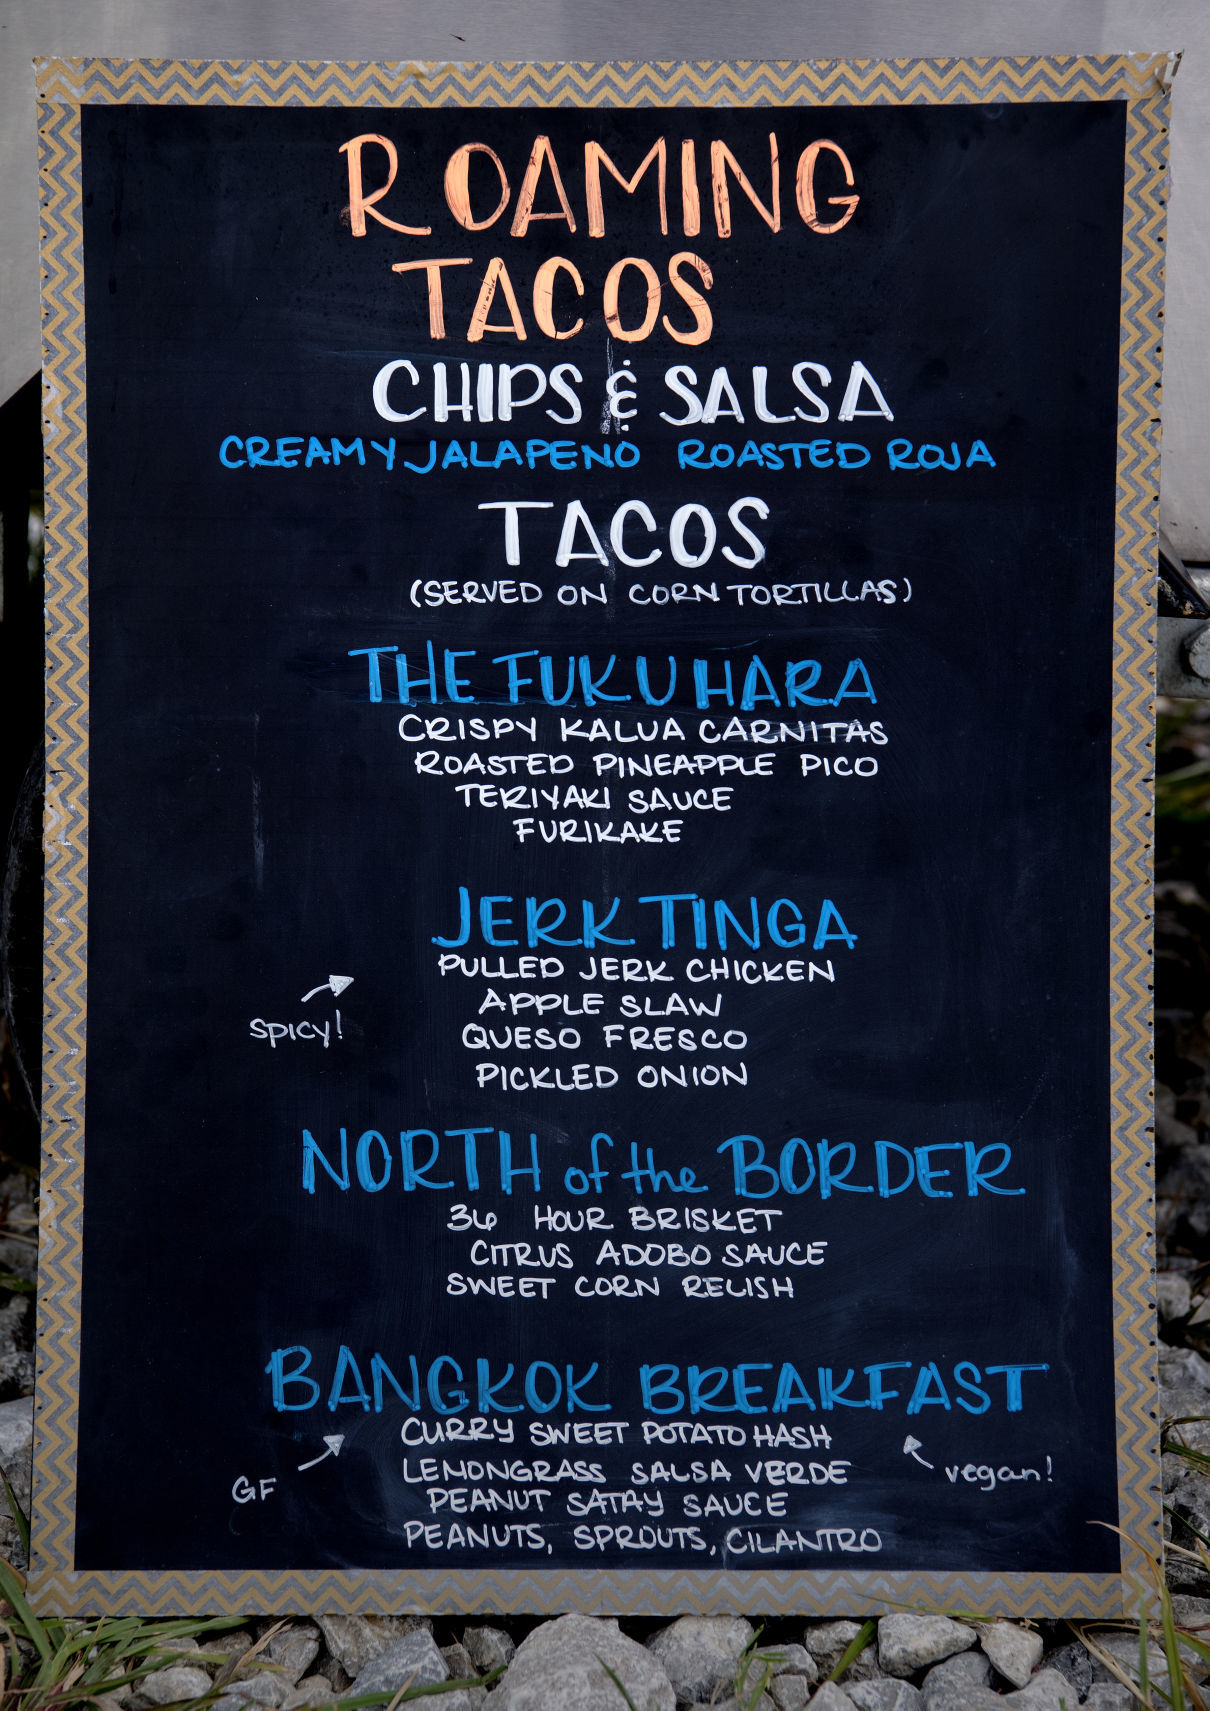 ROAMING
TACOS
CHIPS & SALSA
CREAMY JALAPENO ROASTED ROJA
TACOS
(SERVED ON CORN TORTILLAS)
THE FUKUHARA
CRISPY KALUA CARNITAS
ROASTED PINEAPPLE PICO
TERIYAKI SAUCE
FURIKAKE
JERK TINGA
PULLED JERK CHICKEN
APPLE SLAW
QUESO FRESCO
PICKLED ONION
spicy!
NORTH of the BORDER
36 HOUR BRISKET
CITRUS ADOBO SAUCE
SWEET CORN RELISH
BANGKOK BREAKFAST
CURRY SWEET POTATO HASH
LEMONGRASS SALSA VERDE
PEANUT SATAY SAUCE
PEANUTS, SPROUTS, CILANTRO
GF
vegan!